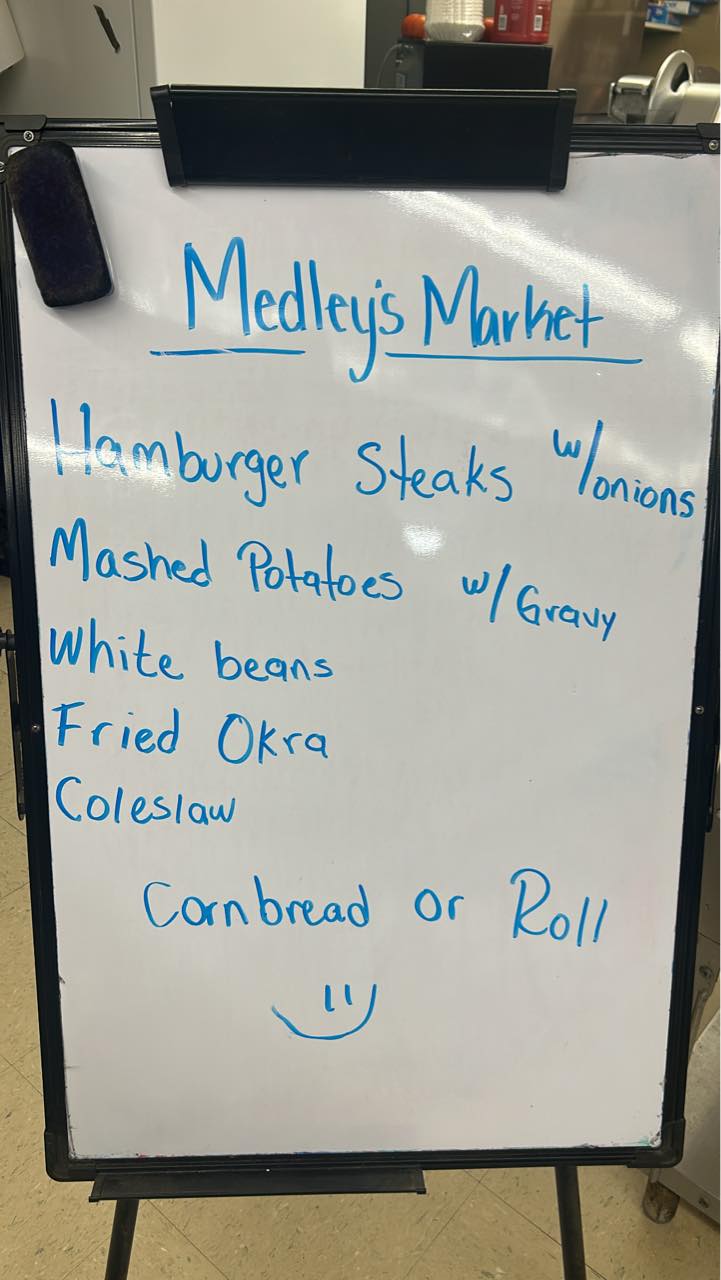 Medley's Market
Hamburger Steaks w/onions
Mashed Potatoes w/ Gravy
White beans
Fried Okra
Coleslaw
Cornbread or Roll